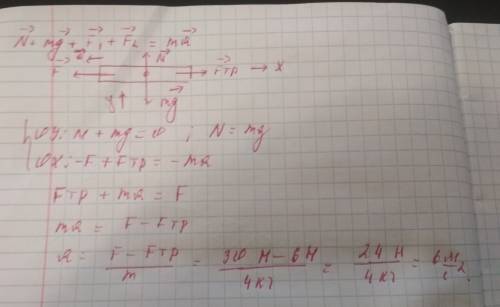 N⃗ + mg⃗ + F⃗₁ + F⃗₂ = ma⃗
a⃗ N⃗
F⃗ F⃗тр → x
y↑ mg⃗
OY: N + mg = 0 ; N = mg
OX: -F + Fтр = -ma
Fтр + ma = F
ma = F - Fтр
a = (F - Fтр)/m = (30 Н - 6 Н)/(4 кг) = (24 Н)/(4 кг) = 6 м/с².